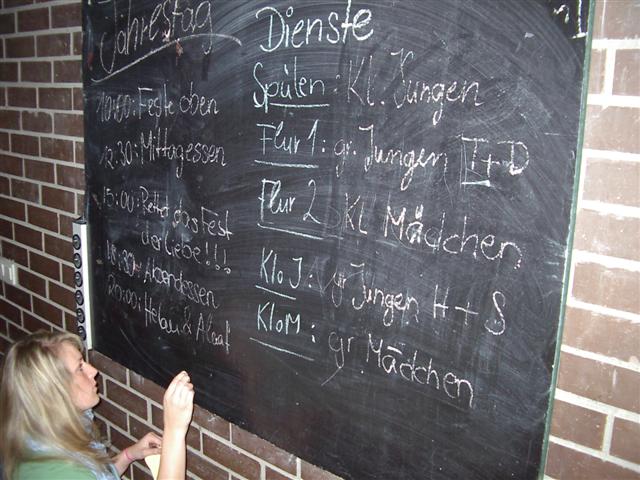 Jahrestag
10:00: Feste oben
12.30: Mittagessen
15:00: Rettet das Fest
der Liebe!!!
18:30: Abendessen
20:00: Helau & Alaaf
Dienste
Spülen: Kl. Jungen
Flur 1: gr. Jungen T+D
Flur 2 Kl Mädchen
Klo J: gr Jungen H + S
Klo M: gr Mädchen